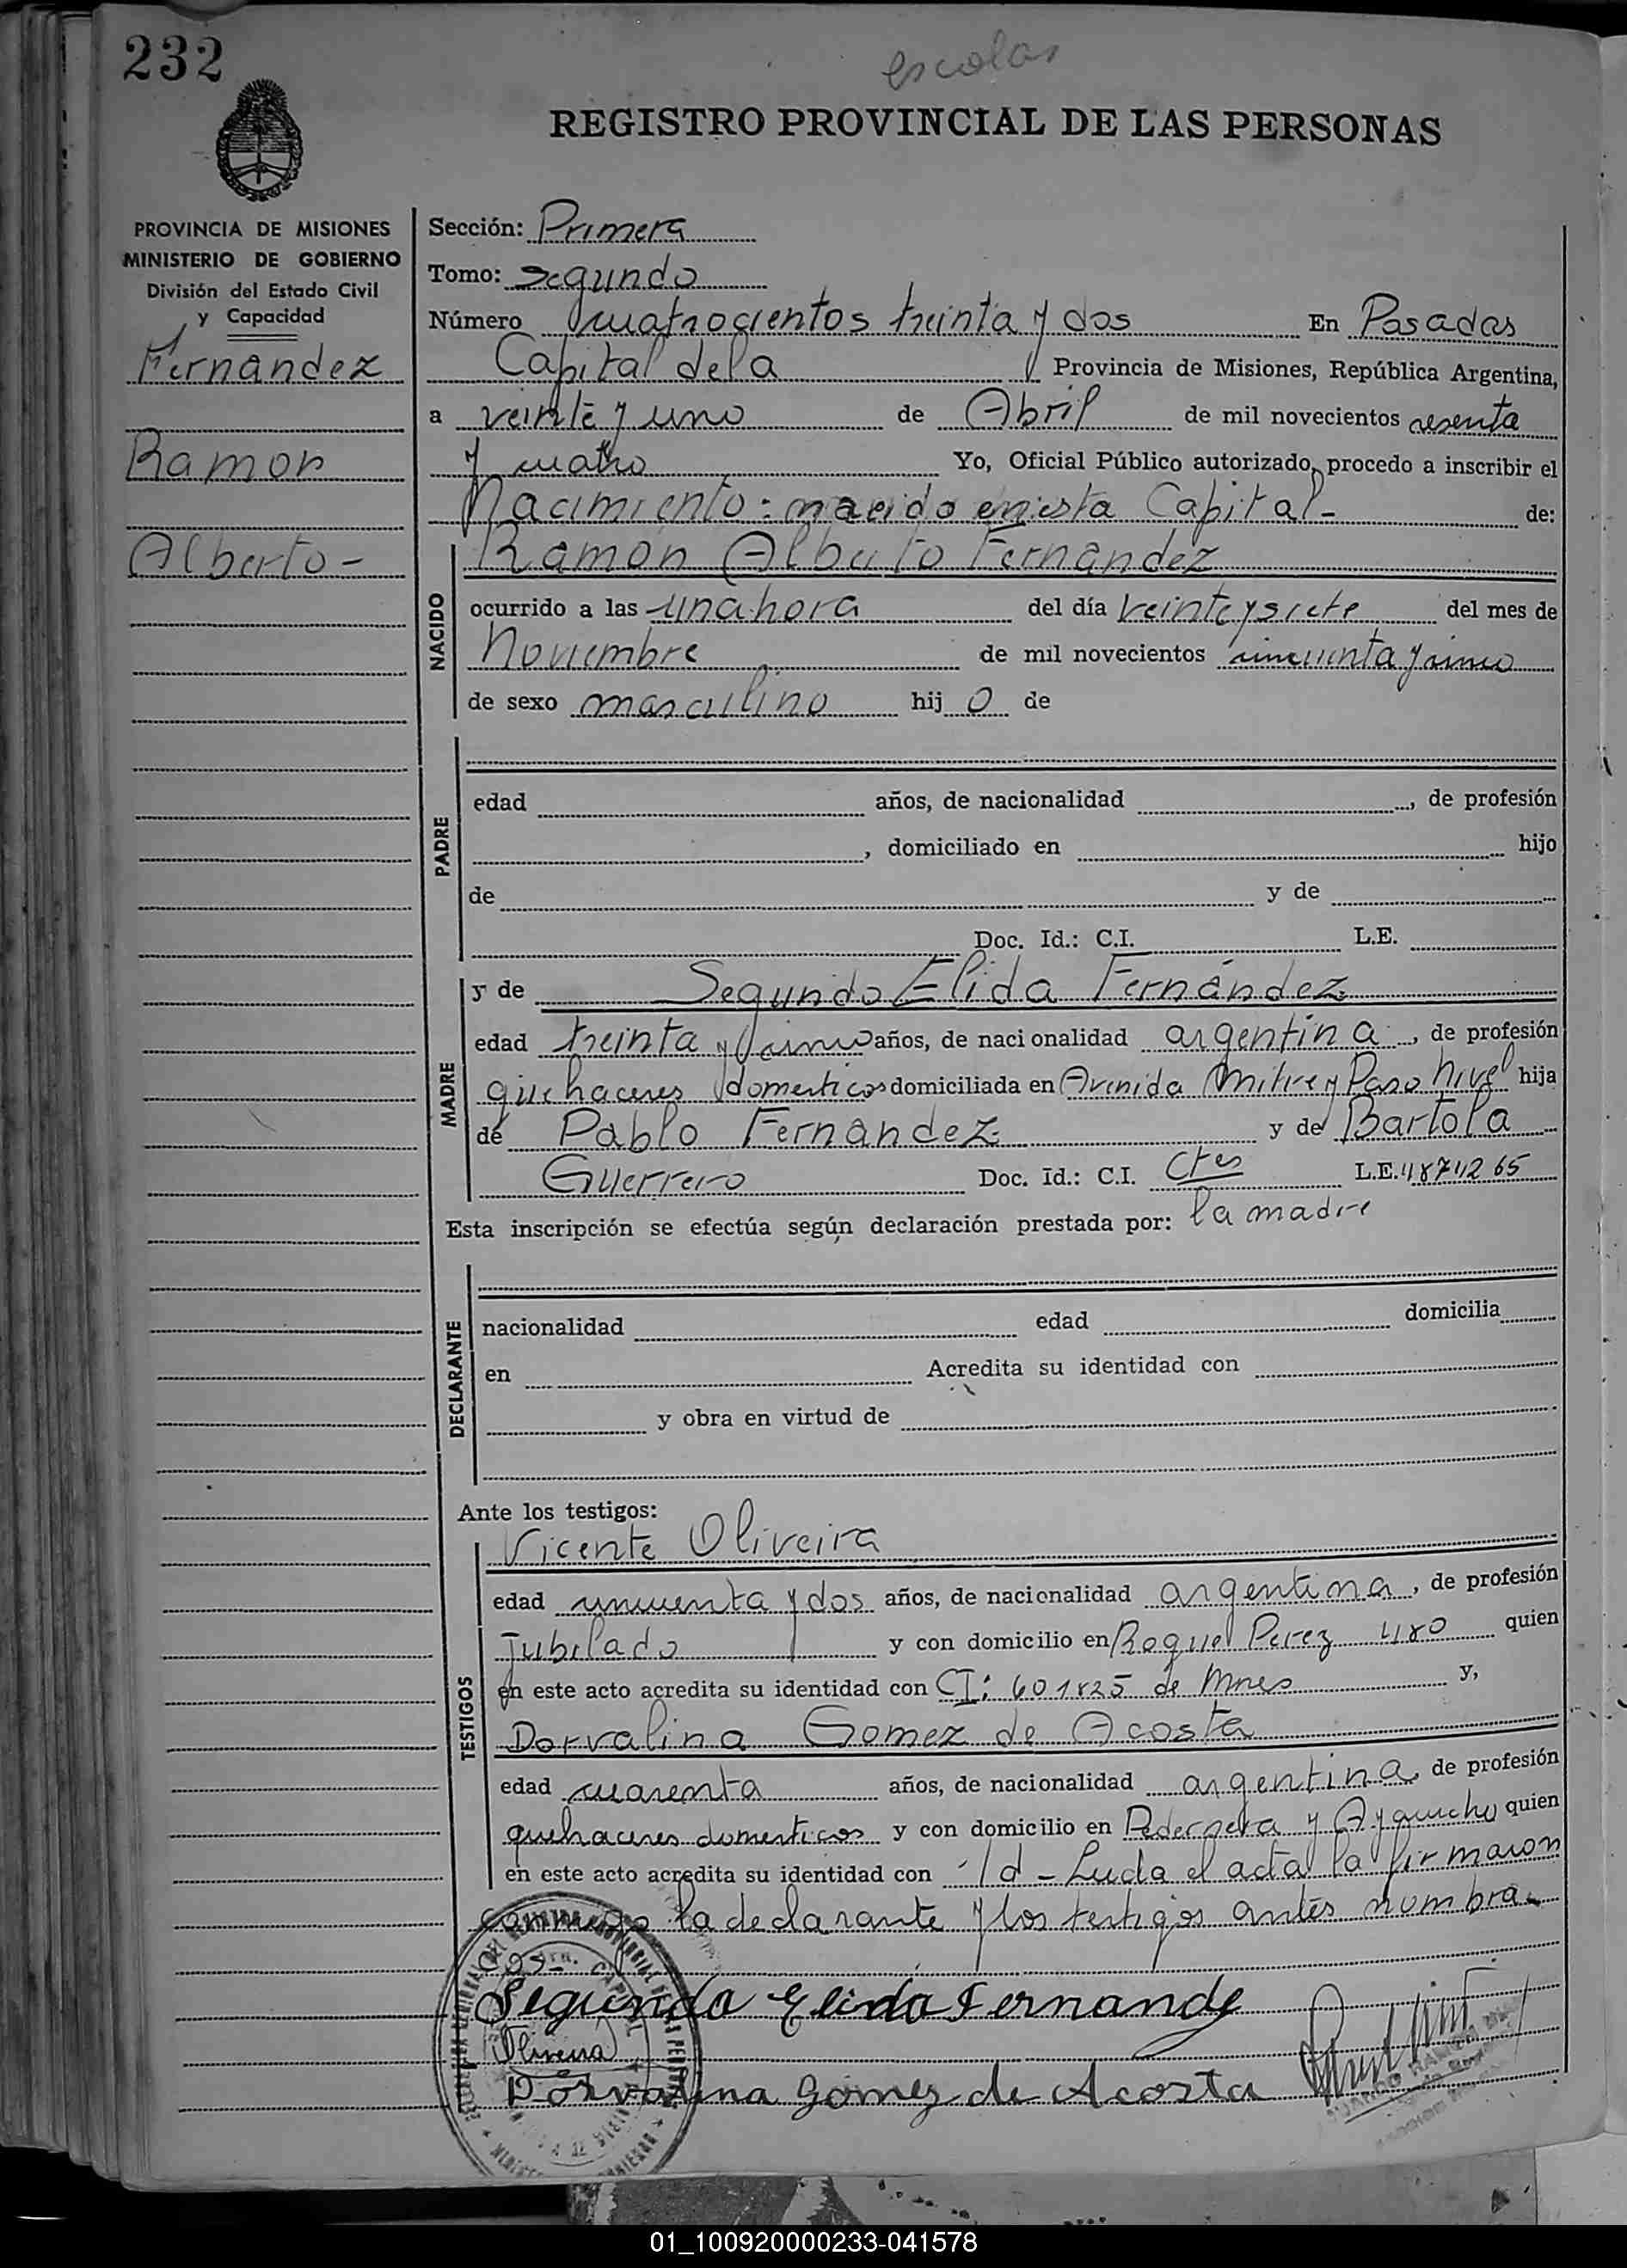 232
escolar
REGISTRO PROVINCIAL DE LAS PERSONAS
PROVINCIA DE MISIONES
MINISTERIO DE GOBIERNO
División del Estado Civil
y Capacidad
Fernández
Ramon
Alberto -
Sección: Primera
Tomo: Segundo
Número cuatrocientos treinta y dos En Posadas
Capital de la Provincia de Misiones, República Argentina,
a veinte y uno de Abril de mil novecientos sesenta
y cuatro Yo, Oficial Público autorizado, procedo a inscribir el
Nacimiento: nacido en esta Capital - de:
NACIDO
Ramon Alberto Fernández
ocurrido a las una hora del día veinte y siete del mes de
Noviembre de mil novecientos cincuenta y cinco
de sexo masculino hij o de
PADRE
edad años, de nacionalidad , de profesión
, domiciliado en hijo
de y de
Doc. Id.: C.I. L.E.
MADRE
y de Segundo Elida Fernández
edad treinta y cinco años, de naci onalidad argentina , de profesión
quehaceres domesticos domiciliada en Avenida Mitre y Paso Nivel hija
de Pablo Fernández y de Bartola
Guerrero Doc. Id.: C.I. Ctes L.E. 4874265
Esta inscripción se efectúa según declaración prestada por: la madre
DECLARANTE
nacionalidad edad domicilia
en Acredita su identidad con
y obra en virtud de
Ante los testigos:
TESTIGOS
Vicente Oliveira
edad cincuenta y dos años, de nacionalidad argentina , de profesión
Jubilado y con domicilio en Roque Perez 480 quien
en este acto acredita su identidad con CI: 601825 de Mnes y,
Dorvalina Gomez de Acosta
edad cuarenta años, de nacionalidad argentina, de profesión
quehaceres domesticos y con domicilio en Pedernera y Ayacucho quien
en este acto acredita su identidad con /d - Leida el acta la firmaron
conmigo la declarante y los testigos antes nombra-
dos-
Segunda Elida Fernande
Oliveira
Dorvalina Gomez de Acosta
01_100920000233-041578